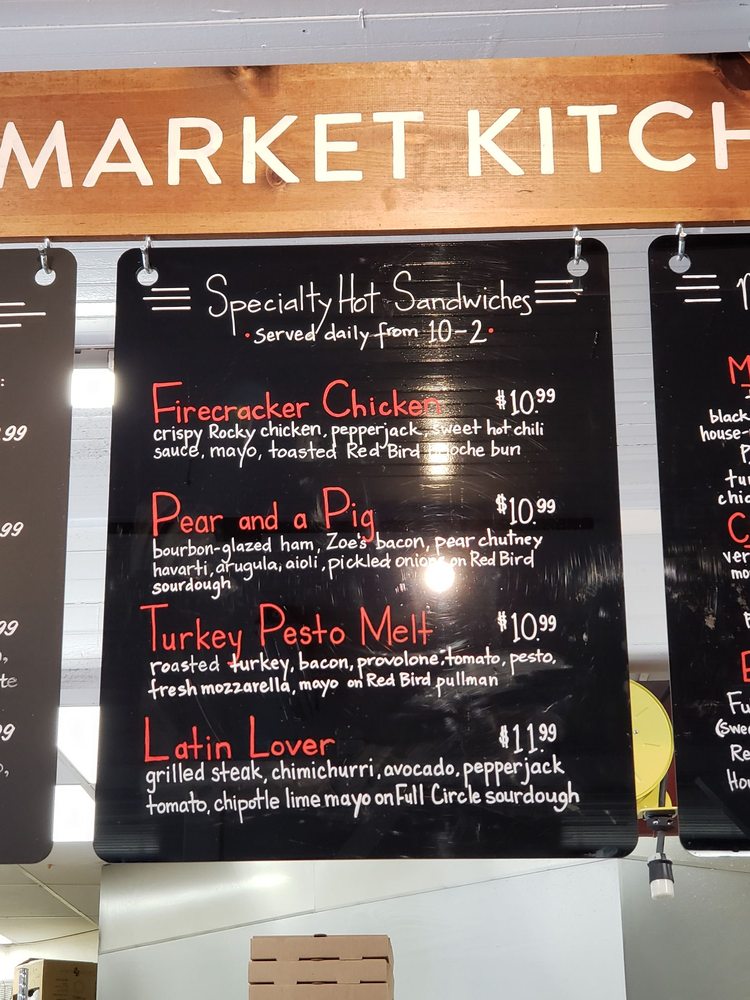 MARKET KITCH
Specialty Hot Sandwiches
• served daily from 10-2 •
Firecracker Chicken $10.99
crispy Rocky chicken, pepperjack, sweet hot chili
sauce, mayo, toasted Red Bird brioche bun
Pear and a Pig $10.99
bourbon-glazed ham, Zoe's bacon, pear chutney
havarti, arugula, aioli, pickled onions on Red Bird
sourdough
Turkey Pesto Melt $10.99
roasted turkey, bacon, provolone, tomato, pesto,
fresh mozzarella, mayo on Red Bird pullman
Latin Lover $11.99
grilled steak, chimichurri, avocado, pepperjack
tomato, chipotle lime mayo on Full Circle sourdough
.99
.99
99
9
M
black
house-
C
ver
mo
Fu
(swe
Re
Ho